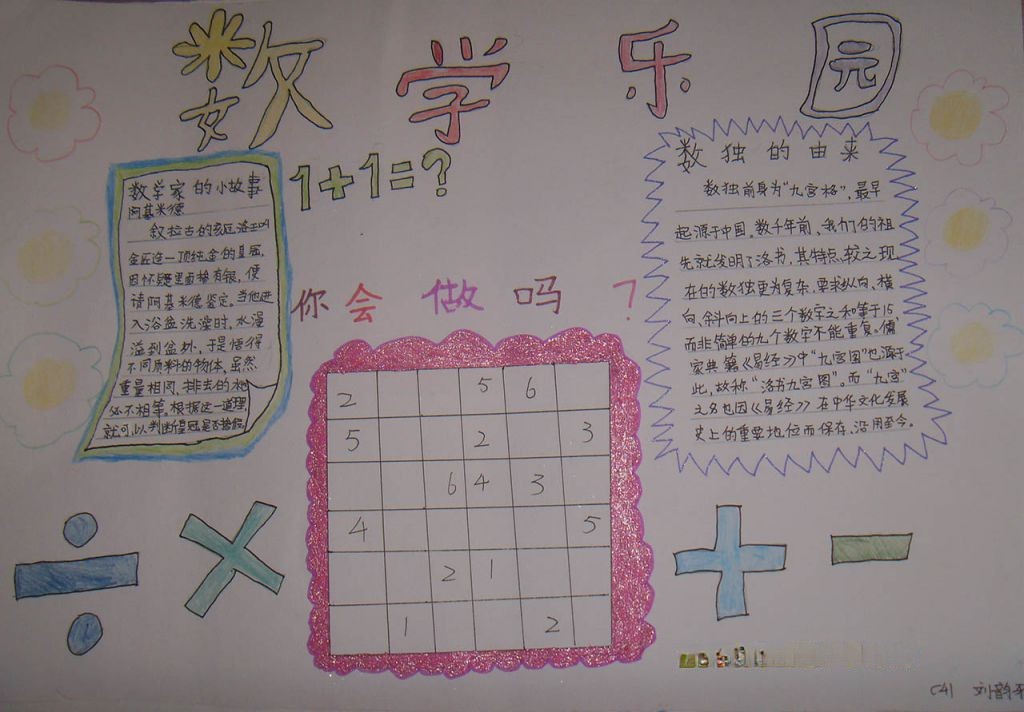 数学乐园
1+1=?
数学家的小故事
阿基米德
叙拉古的亥厄洛王叫
金匠造一顶纯金的皇冠,
因怀疑里面掺有银,便
请阿基米德鉴定。当他进
入浴盆洗澡时,水漫
溢到盆外,于是悟得
不同质料的物体,虽然
重量相同,排去的水
必不相等。根据这一道理,
就可以判断皇冠是否掺假
你会做吗?
2 5 6
5 2 3
6 4 3
4 5
2 1
1 2
数独的由来
数独前身为“九宫格”,最早
起源于中国。数千年前,我们的祖
先就发明了洛书,其特点较之现
在的数独更为复杂,要求纵向、横
向、斜向上的三个数字之和等于15,
而非简单的九个数字不能重复。儒
家典籍《易经》中“九宫图”也源于
此,故称“洛书九宫图”。而“九宫”
之名也因《易经》在中华文化发展
史上的重要地位而保存、沿用至今。
÷ × + −
(4) 刘韵